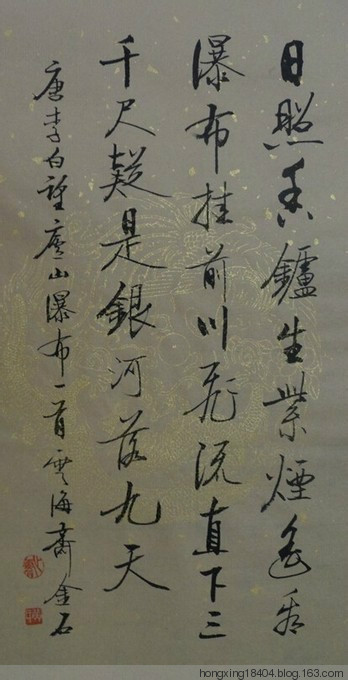 日照香鑪生紫煙遙看
瀑布挂前川飛流直下三
千尺疑是銀河落九天
唐李白望廬山瀑布一首雲海齋金石
hongxing18404.blog.163.com